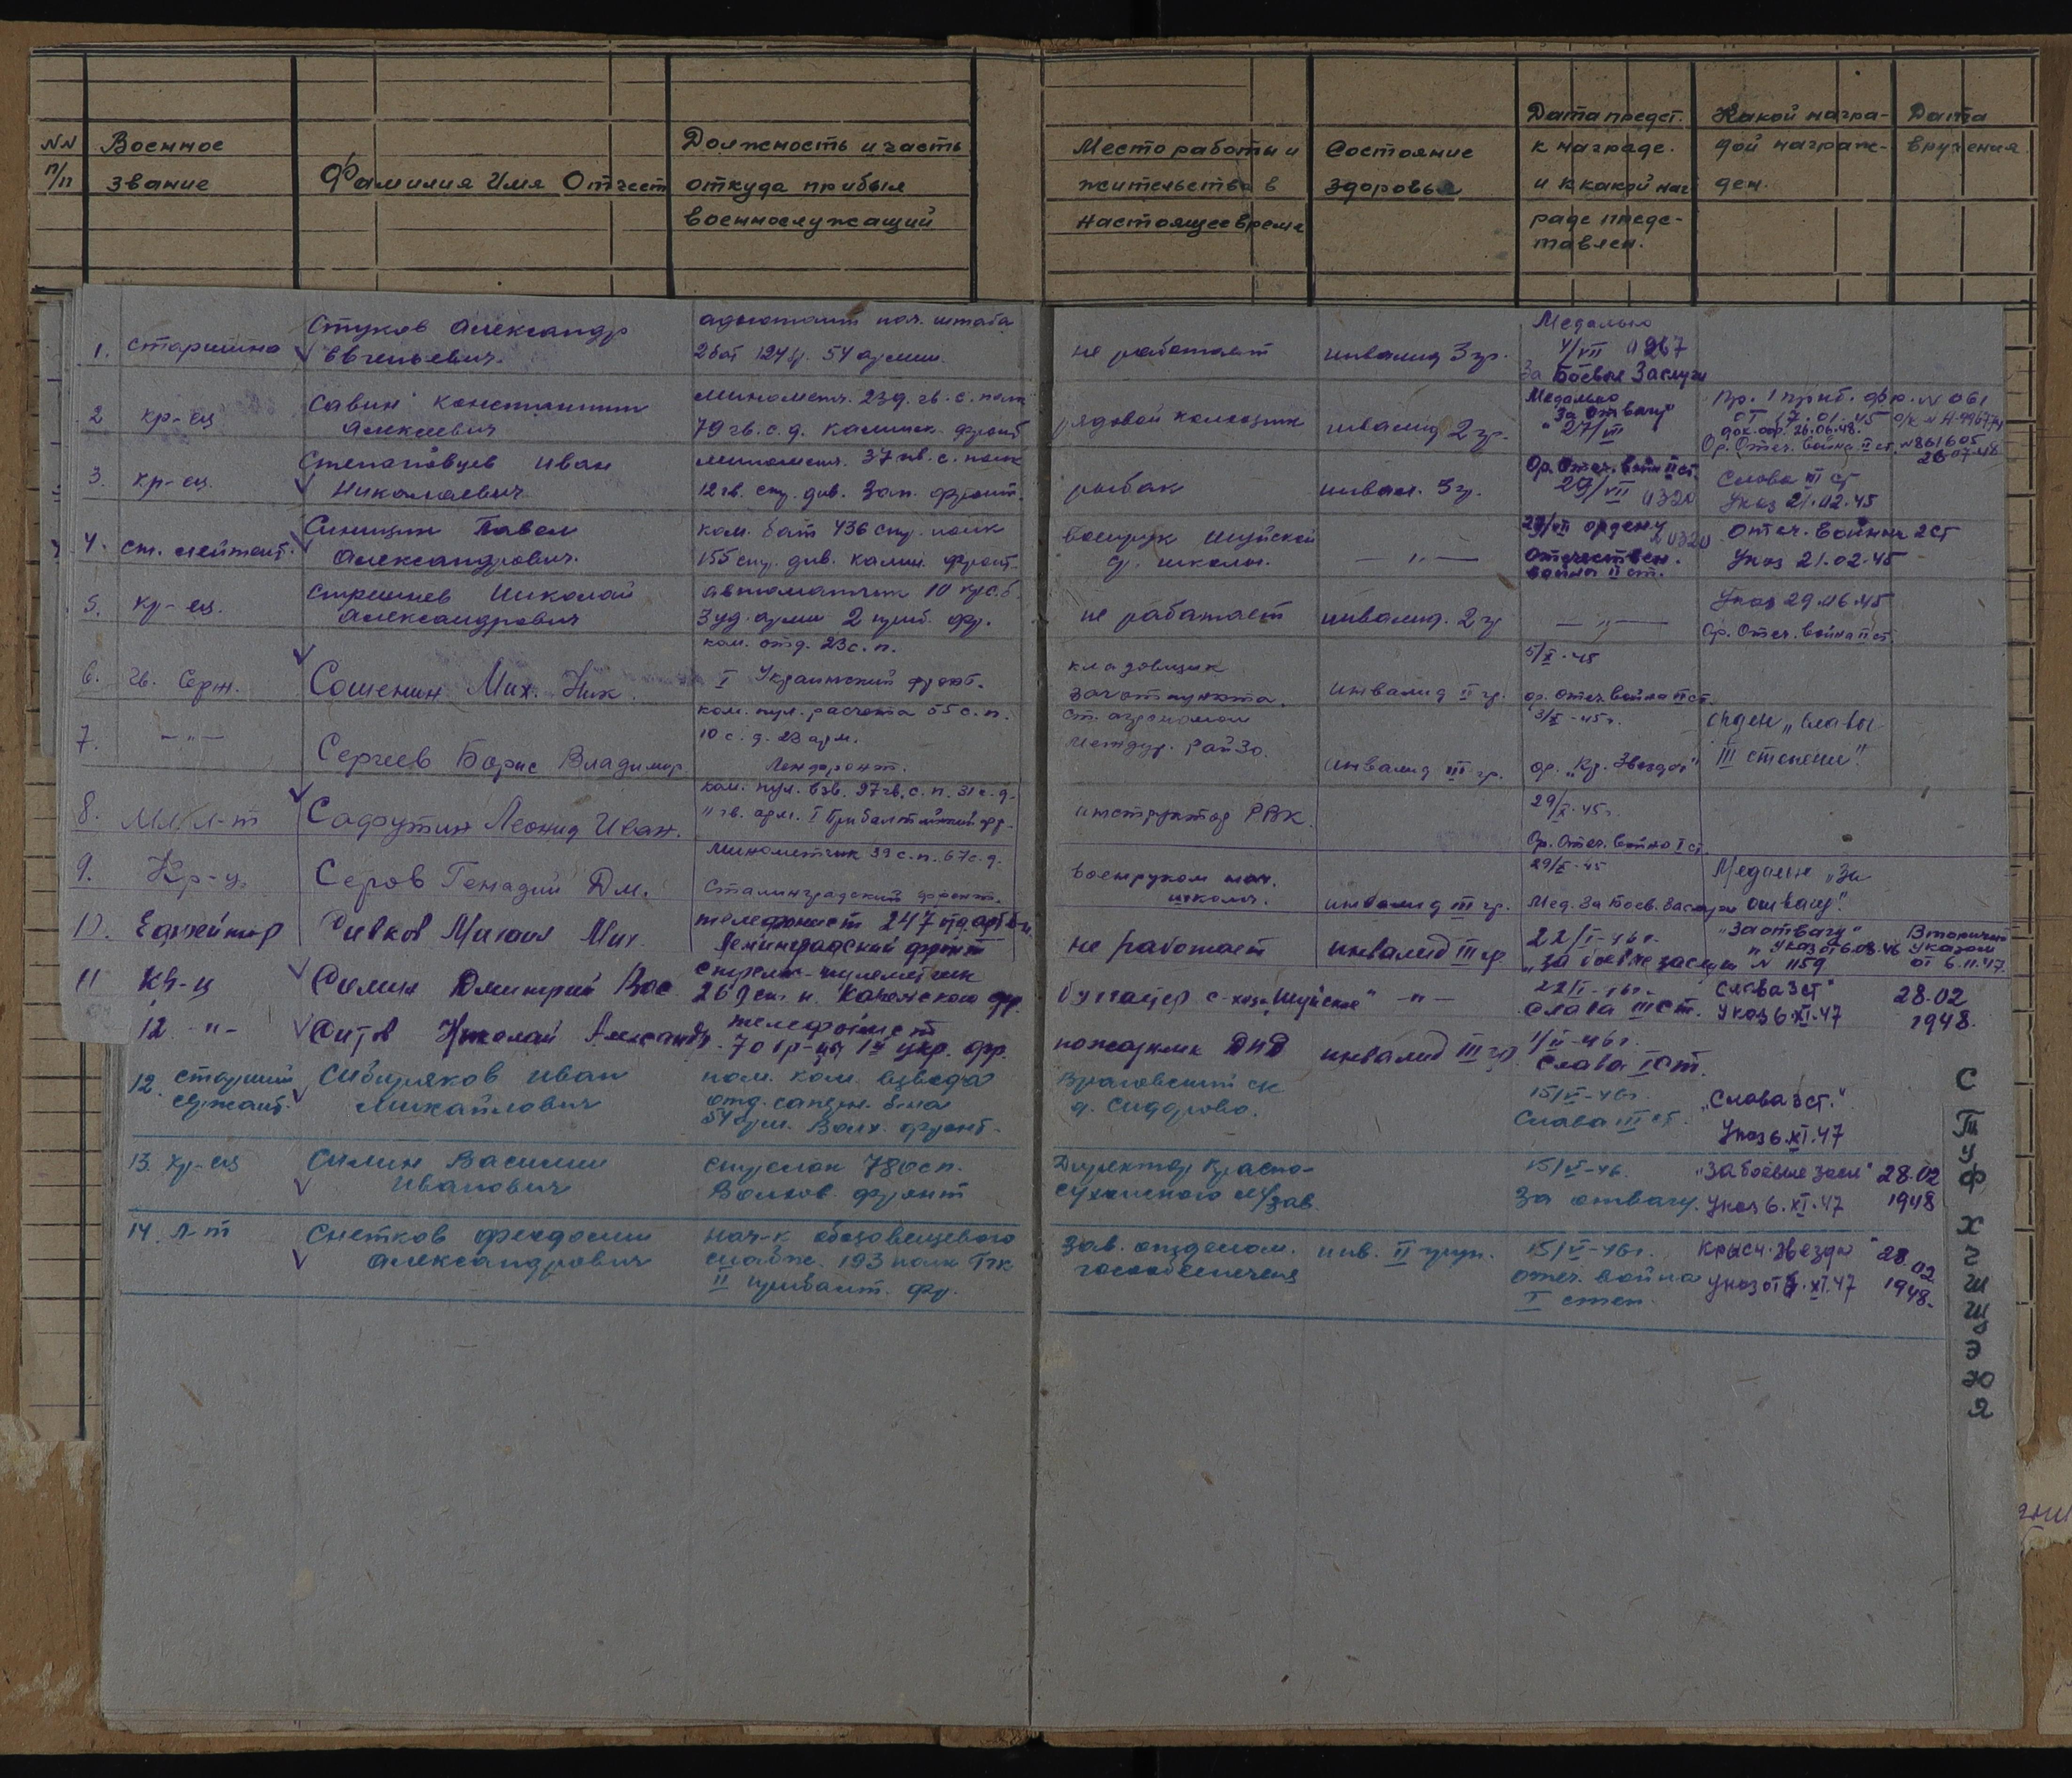 NN п/п
Военное звание
Фамилия Имя Отчест
Должность и часть откуда прибыл военнослужащий
Место работы и жительства в настоящее время
Состояние здоровья
Дата предст. к награде. и к какой наг раде предс- тавлен.
Какой награ- дой награж- ден.
Дата вручения
1. старшина
Стуков Александр
Евгеньевич.
адъютант нач. штаба
2 бат 124 54 армии.
не работает
инвалид 3 гр.
Медалью
V/VII 0267
За Боевые Заслуги
2 кр-ец
Савин Константин
Алексеевич
минометч. 239. гв. с. полк
79 гв. с. д. Калинск. фронт
рядовой колхозник
инвалид 2 гр.
Медалью
"За отвагу"
27/VIII
Пр. 1 приб. фр. N 061
от 17.01.45
док. офр. 26.06.48.
Ор. Отеч. война II ст. N 861605
26.07.48
3. кр-ец
Иван
Николаевич
минометч. 37 гв. с. полк
12 гв. стр. див. Зап. фронт.
рыбак
инвал. 3 г.
Ор. Отеч. войн II ст.
29/VII 0320
Слава III ст
Указ 21.02.45
4. ст. лейтент.
Синицин Павел
Александрович.
ком. бат 436 стр. полк
155 стр. див. Калин. фронт
военрук Шуйской
ср. школы.
— " —
29/VII ордену
0320
Отечествен.
война II ст.
Отеч. войны 2 ст
Указ 21.02.45
5. кр-ец.
Николай
Александрович
автоматчик 10
3 уд. армии 2 приб. фр.
не работает
инвалид. 2 г
— " —
Указ 29.
Ор. Отеч. война II ст.
6. гв. Серж.
Сошенин Мих. Ник.
ком. отд. 23 с. п.
I Украинский фронт.
кладовщик
заготпункта.
инвалид II гр.
5/X-45
ор. Отеч. война II ст.
7. — " —
Сергеев Борис Владимир
ком. пул. расчета 55 с. п.
10 с. д. 23 арм.
Ленфронт.
ст. агрономом
Междур. РайЗо.
инвалид III гр.
3/X-45 г.
ор. „Кр. Звезда"
орден „Славы
III степени".
8. Мл. Л-т
Сафутин Леонид Иван.
ком. пул. взв. 97 гв. с. п. 31 с. д.
11 гв. арм. I Прибалтийский фр.
инструктор РВК.
29/X-45 г.
Ор. Отеч. война I ст.
9. Кр-ц.
Серов Генадий Дм.
Минометчик 39 с. п. 67 с. д.
Сталинградский фронт.
военруком нач.
школы.
инвалид III гр.
29/X-45
Мед. За Боев. Заслуги
Медалью „За
отвагу".
10. Ефрейтор
Сивков Михаил Мих.
телефонист 247
Ленинградский фронт
не работает
инвалид III гр.
22/I-46 г.
„За боевые заслуги
"За отвагу"
Указ от 6.08.46
N 1159
Вторично
указом
от 6.11.47.
11 Кр-ц
Силин Дмитрий Вас
стрелок-пулеметчик
269 сп. н. Карельского фр.
бухгалтер с-хоза „Шуйское"
— " —
22/I-46 г.
Слава III ст.
"Слава 3 ст"
Указ 6.XI.47
28.02
1948.
12. -"-
Ситов Николай Александр
телефонист
70 1й Укр. фр.
пожарник ДПД
инвалид III гр
1/II-46 г.
Слава I ст.
12. старший
сержант.
Сибиряков Иван
Михайлович
пом. ком. взвода
отд. саперн. б-на
54 арм. Волх. фронт.
Враговский с/с
д. Сидорово.
15/V-46 г.
Слава III ст.
„Слава 3 ст."
Указ 6.XI.47
13. кр-ец
Силин Василий
Иванович
стрелок 780 сп.
Волхов. фронт
Директор Красно-
м/зав.
15/V-46.
За отвагу.
"За боевые засл"
Указ 6.XI.47
28.02
1948
14. л-т
Снетков Феодосий
Александрович
нач-к обозовещевого
снабж. 193 полк
II прибалт. фр.
Зав. отделом.
гособеспечения
инв. II груп.
15/V-46 г.
отеч. война
I степ.
Красн. Звезда"
Указ от 6.XI.47
28.02
1948.
С
Т
У
Ф
Х
Ч
Ш
Щ
Э
Ю
Я